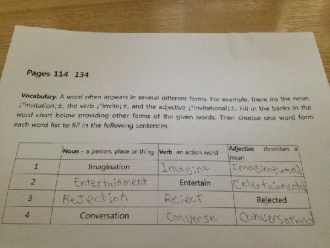 Pages 114 134
Vocabulary. A word often appears in several different forms. For example, there ins the noun
¡°invitation¡±, the verb ¡°invite¡±, and the adjective ¡°invitational¡±. Fill in the banks in the
word chart below providing other forms of the given words. Then choose one word form
each word list to fill in the following sentences.
Noun - a person, place or thing Verb an action word Adjective describes a
noun
1 Imagination Imagine Imaginational
2 Entertainment Entertain Entertainments
3 Rejection Reject Rejected
4 Conversation Converse Conversational